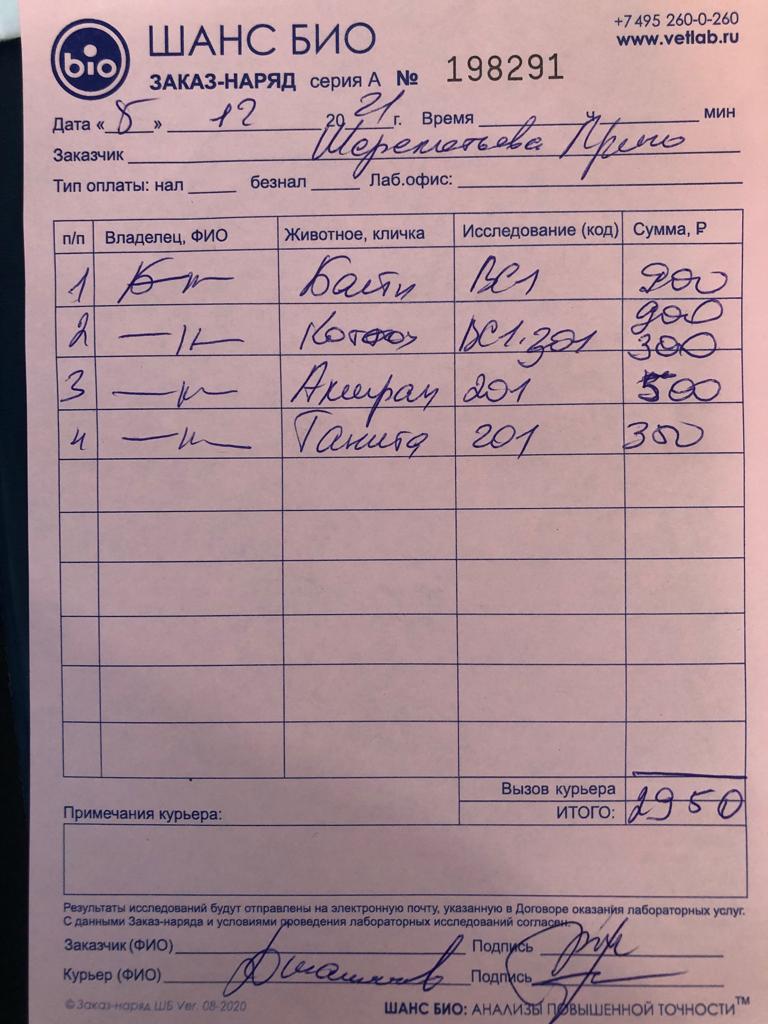 bio ШАНС БИО
+7 495 260-0-260
www.vetlab.ru
ЗАКАЗ-НАРЯД серия А № 198291
Дата «8» 12 2021 г. Время ч мин
Заказчик Шереметьева
Тип оплаты: нал безнал Лаб.офис:
п/п Владелец, ФИО Животное, кличка Исследование (код) Сумма, ₽
1 Басти BC1 900
2 BC1.301 900 300
3 Амирам 201 500
4 Танита 201 350
Вызов курьера
ИТОГО: 2950
Примечания курьера:
Результаты исследований будут отправлены на электронную почту, указанную в Договоре оказания лабораторных услуг.
С данными Заказ-наряда и условиями проведения лабораторных исследований согласен.
Заказчик (ФИО) Подпись
Курьер (ФИО) Подпись
© Заказ-наряд ШБ Ver. 08-2020
ШАНС БИО: АНАЛИЗЫ ПОВЫШЕННОЙ ТОЧНОСТИ™